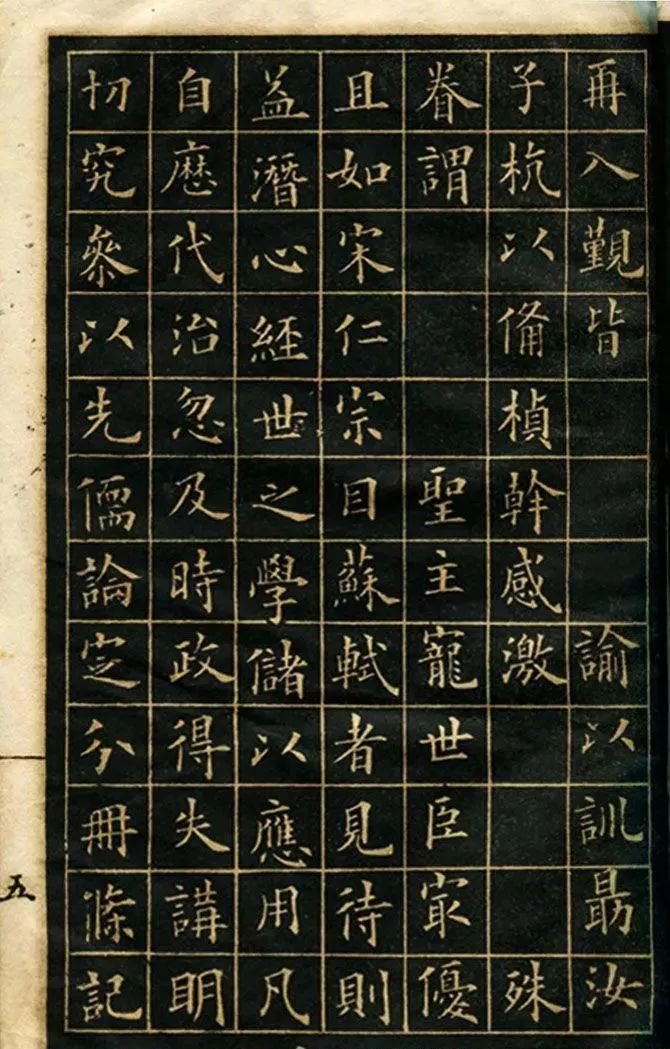 再入覲皆諭以訓勗汝
子杭以備楨幹感激殊
眷謂聖主寵世臣冣優
且如宋仁宗目蘇軾者見待則
益潛心經世之學儲以應用凡
自厯代治忽及時政得失講明
切究叅以先儒論定分冊條記
五